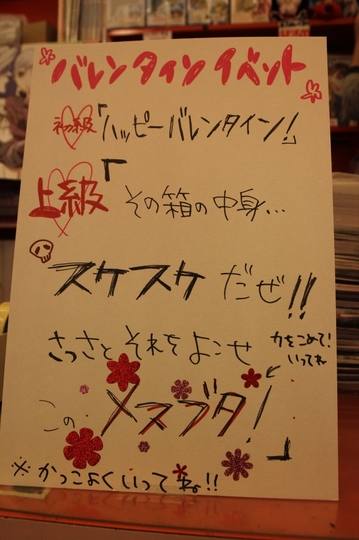 バレンタインイベント
初級「ハッピーバレンタイン!」
上級「その箱の中身…
スケスケだぜ!!
さっさとそれをよこせ
力をこめて!
いってね
このメスブタ!」
※かっこよくいってね!!